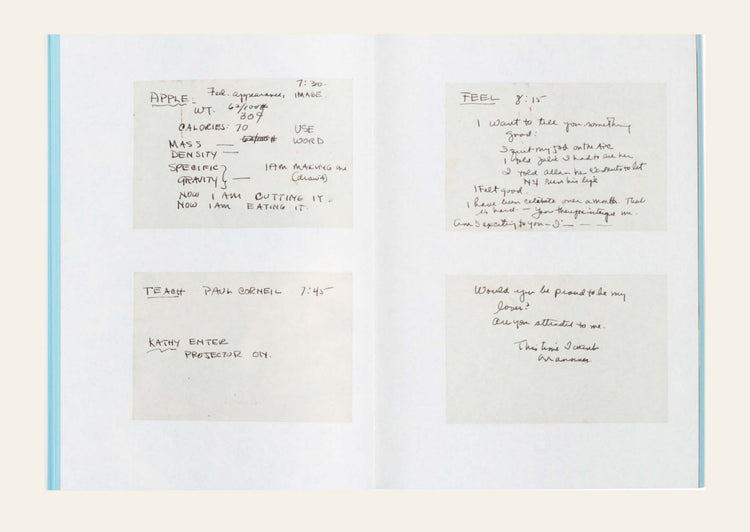 7:30.
APPLE: Fed. appearance, IMAGE.
WT. 62/100#
309
CALORIES: 70 USE
MASS — 62/100# WORD
DENSITY —
SPECIFIC } I AM MAKING
GRAVITY } — (draw it)
NOW I AM CUTTING IT.
NOW I AM EATING IT.
TEACH PAUL CORNEIL 7:45
KATHY ENTER
PROJECTOR ON.
FEEL 8:15
I want to tell you something
good:
I quit my job on the
I told Julie I had to see her
I told Allan he to let
NY his life
I felt good.
I have been celibate over a month. That
is hard — Your me.
Am I exciting to you — I — — —
Would you be proud to be my
lover?
Are you attracted to me.
This time I want